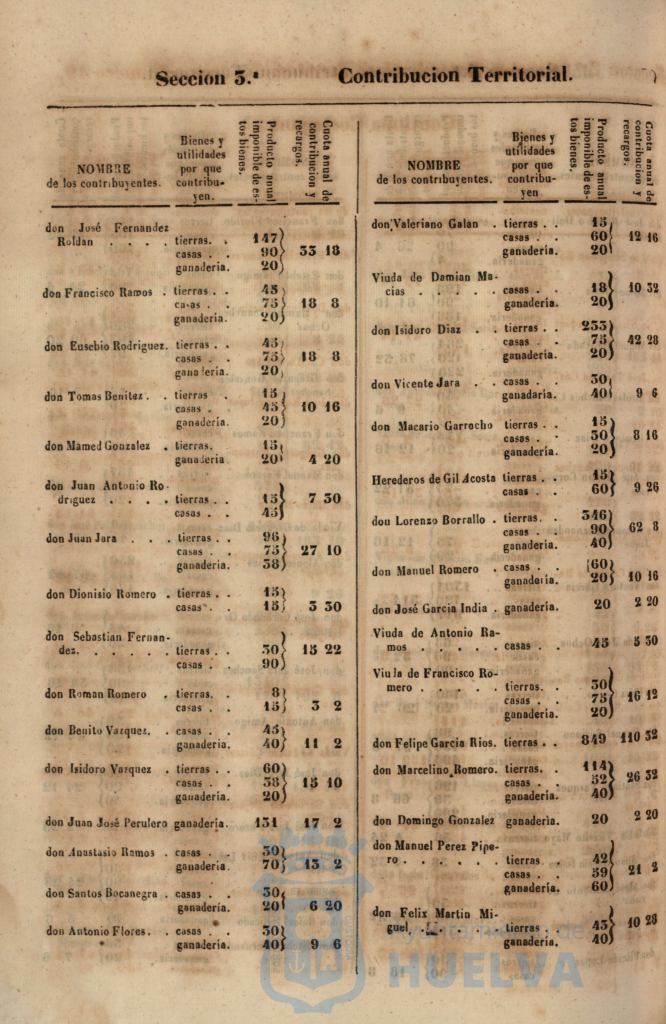 Seccion 3.ª Contribucion Territorial.
NOMBRE
de los contribuyentes.
Bienes y
utilidades
por que
contribu-
yen.
Producto anual
imponible de es-
tos bienes.
Cuota anual de
contribucion y
recargos.
don José Fernandez
Roldan . . . . tierras. . 147
casas . . 90 33 18
ganaderia. 20
don Francisco Ramos . tierras . . 45
casas . . 75 18 8
ganaderia. 20
don Eusebio Rodriguez. tierras . . 45
casas . . 75 18 8
ganaderia. 20
don Tomas Benitez . . tierras 15
casas . 45 10 16
ganaderia. 20
don Mamed Gonzalez . tierras. 15
ganaderia 20 4 20
don Juan Antonio Ro-
driguez . . . . tierras . . 15 7 30
casas . . 45
don Juan Jara . . . tierras . . 96
casas . . 75 27 10
ganaderia. 38
don Dionisio Romero . tierras . . 15
casas . . 15 3 30
don Sebastian Fernan-
dez. . . . . . tierras . . 30 15 22
casas . . 90
don Roman Romero . tierras. . 8
casas . . 15 3 2
don Benito Vazquez. . casas . . 45
ganaderia. 40 11 2
don Isidoro Vazquez . tierras . . 60
casas . . 38 15 10
ganaderia. 20
don Juan José Perulero ganaderia. 131 17 2
don Anastasio Ramos . casas . . 30
ganaderia. 70 13 2
don Santos Bocanegra . casas . . 30
ganaderia. 20 6 20
don Antonio Flores. . casas . . 30
ganaderia. 40 9 6
NOMBRE
de los contribuyentes.
Bienes y
utilidades
por que
contribu-
yen
Producto anual
imponible de es-
tos bienes.
Cuota anual de
contribucion y
recargos.
don Valeriano Galan . tierras . . 15
casas . . 60 12 16
ganaderia. 20
Viuda de Damian Ma-
cias . . . . . casas . . 18 10 32
ganaderia. 20
don Isidoro Diaz . . tierras . . 233
casas . . 75 42 28
ganaderia. 20
don Vicente Jara . . casas . . 30
ganadaría. 40 9 6
don Macario Garrocho tierras . . 15
casas . . 30 8 16
ganaderia. 20
Herederos de Gil Acosta tierras . . 15
casas . . 60 9 26
don Lorenzo Borrallo . tierras. . 346
casas . . 90 62 8
ganaderia. 40
don Manuel Romero . casas . . 60
ganaderia. 20 10 16
don José Garcia India . ganaderia. 20 2 20
Viuda de Antonio Ra-
mos . . . . . casas . . 45 5 30
Viuda de Francisco Ro-
mero . . . . . tierras. . 30
casas . . 75 16 12
ganaderia. 20
don Felipe Garcia Rios. tierras . . 849 110 32
don Marcelino Romero. tierras. . 114
casas . . 52 26 32
ganaderia. 40
don Domingo Gonzalez ganaderia. 20 2 20
don Manuel Perez Pipe-
ro . . . . . . tierras 42
casas . . 59 21 2
ganaderia. 60
don Felix Martin Mi-
guel. . . . . tierras . . 43 10 28
ganaderia. 40
HUELVA